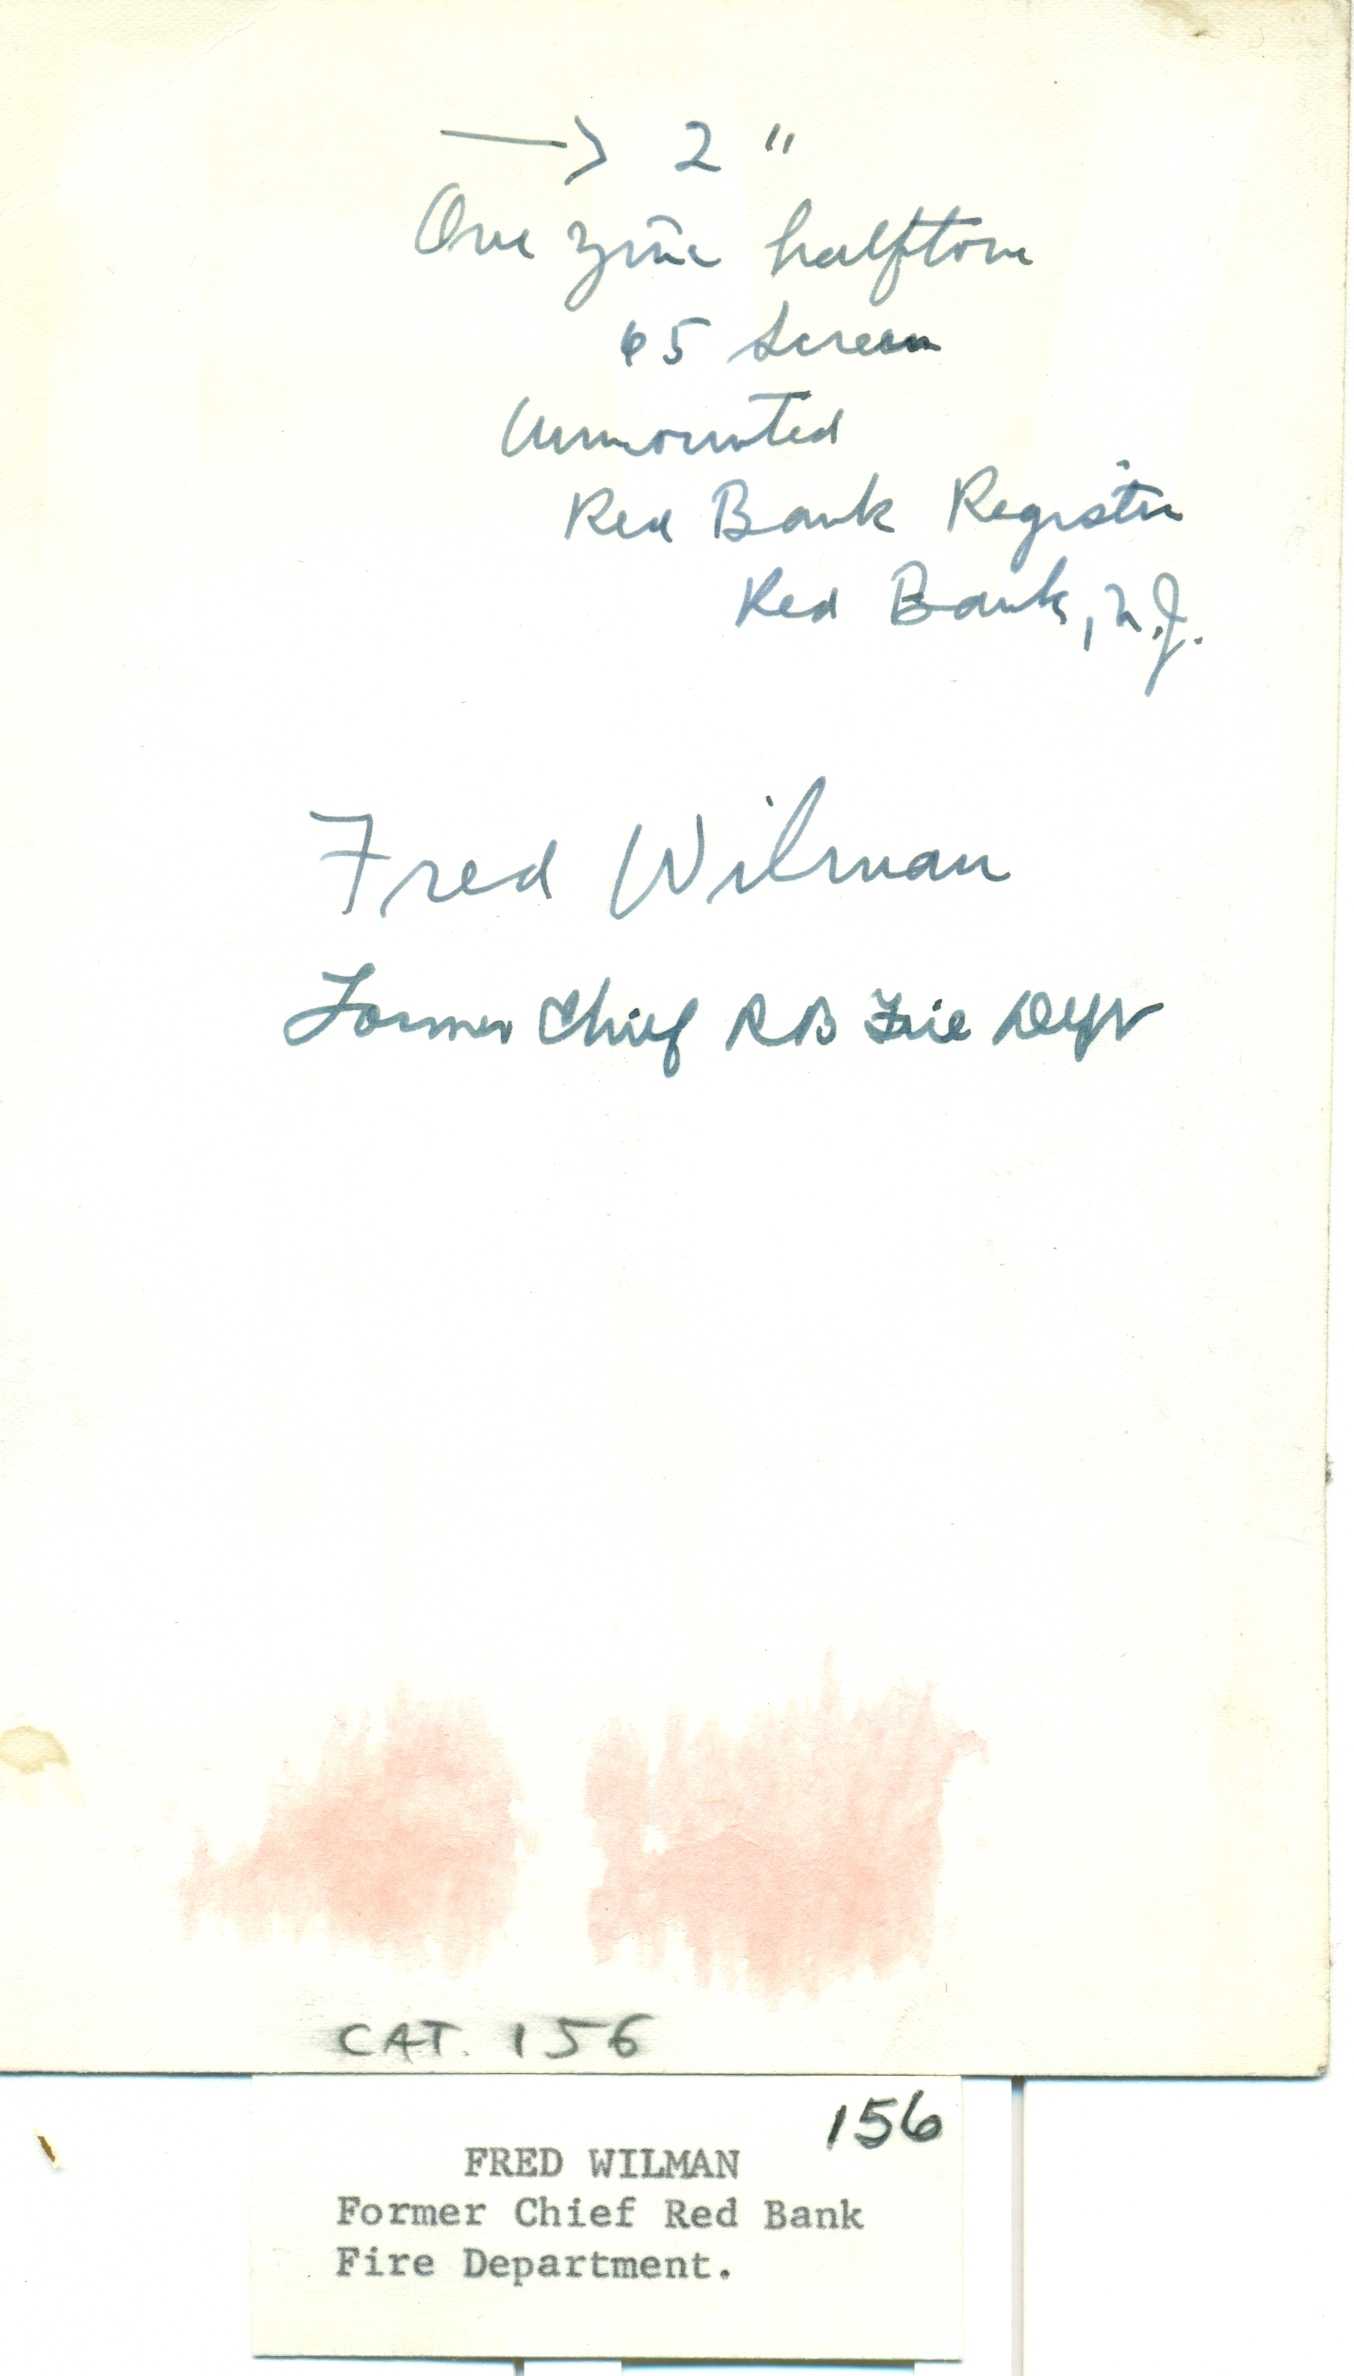 → 2"
One zinc halftone
65 screen
Unmounted
Red Bank Register
Red Bank, N.J.
Fred Wilman
Former Chief RB Fire Dept
CAT. 156
156
FRED WILMAN
Former Chief Red Bank
Fire Department.